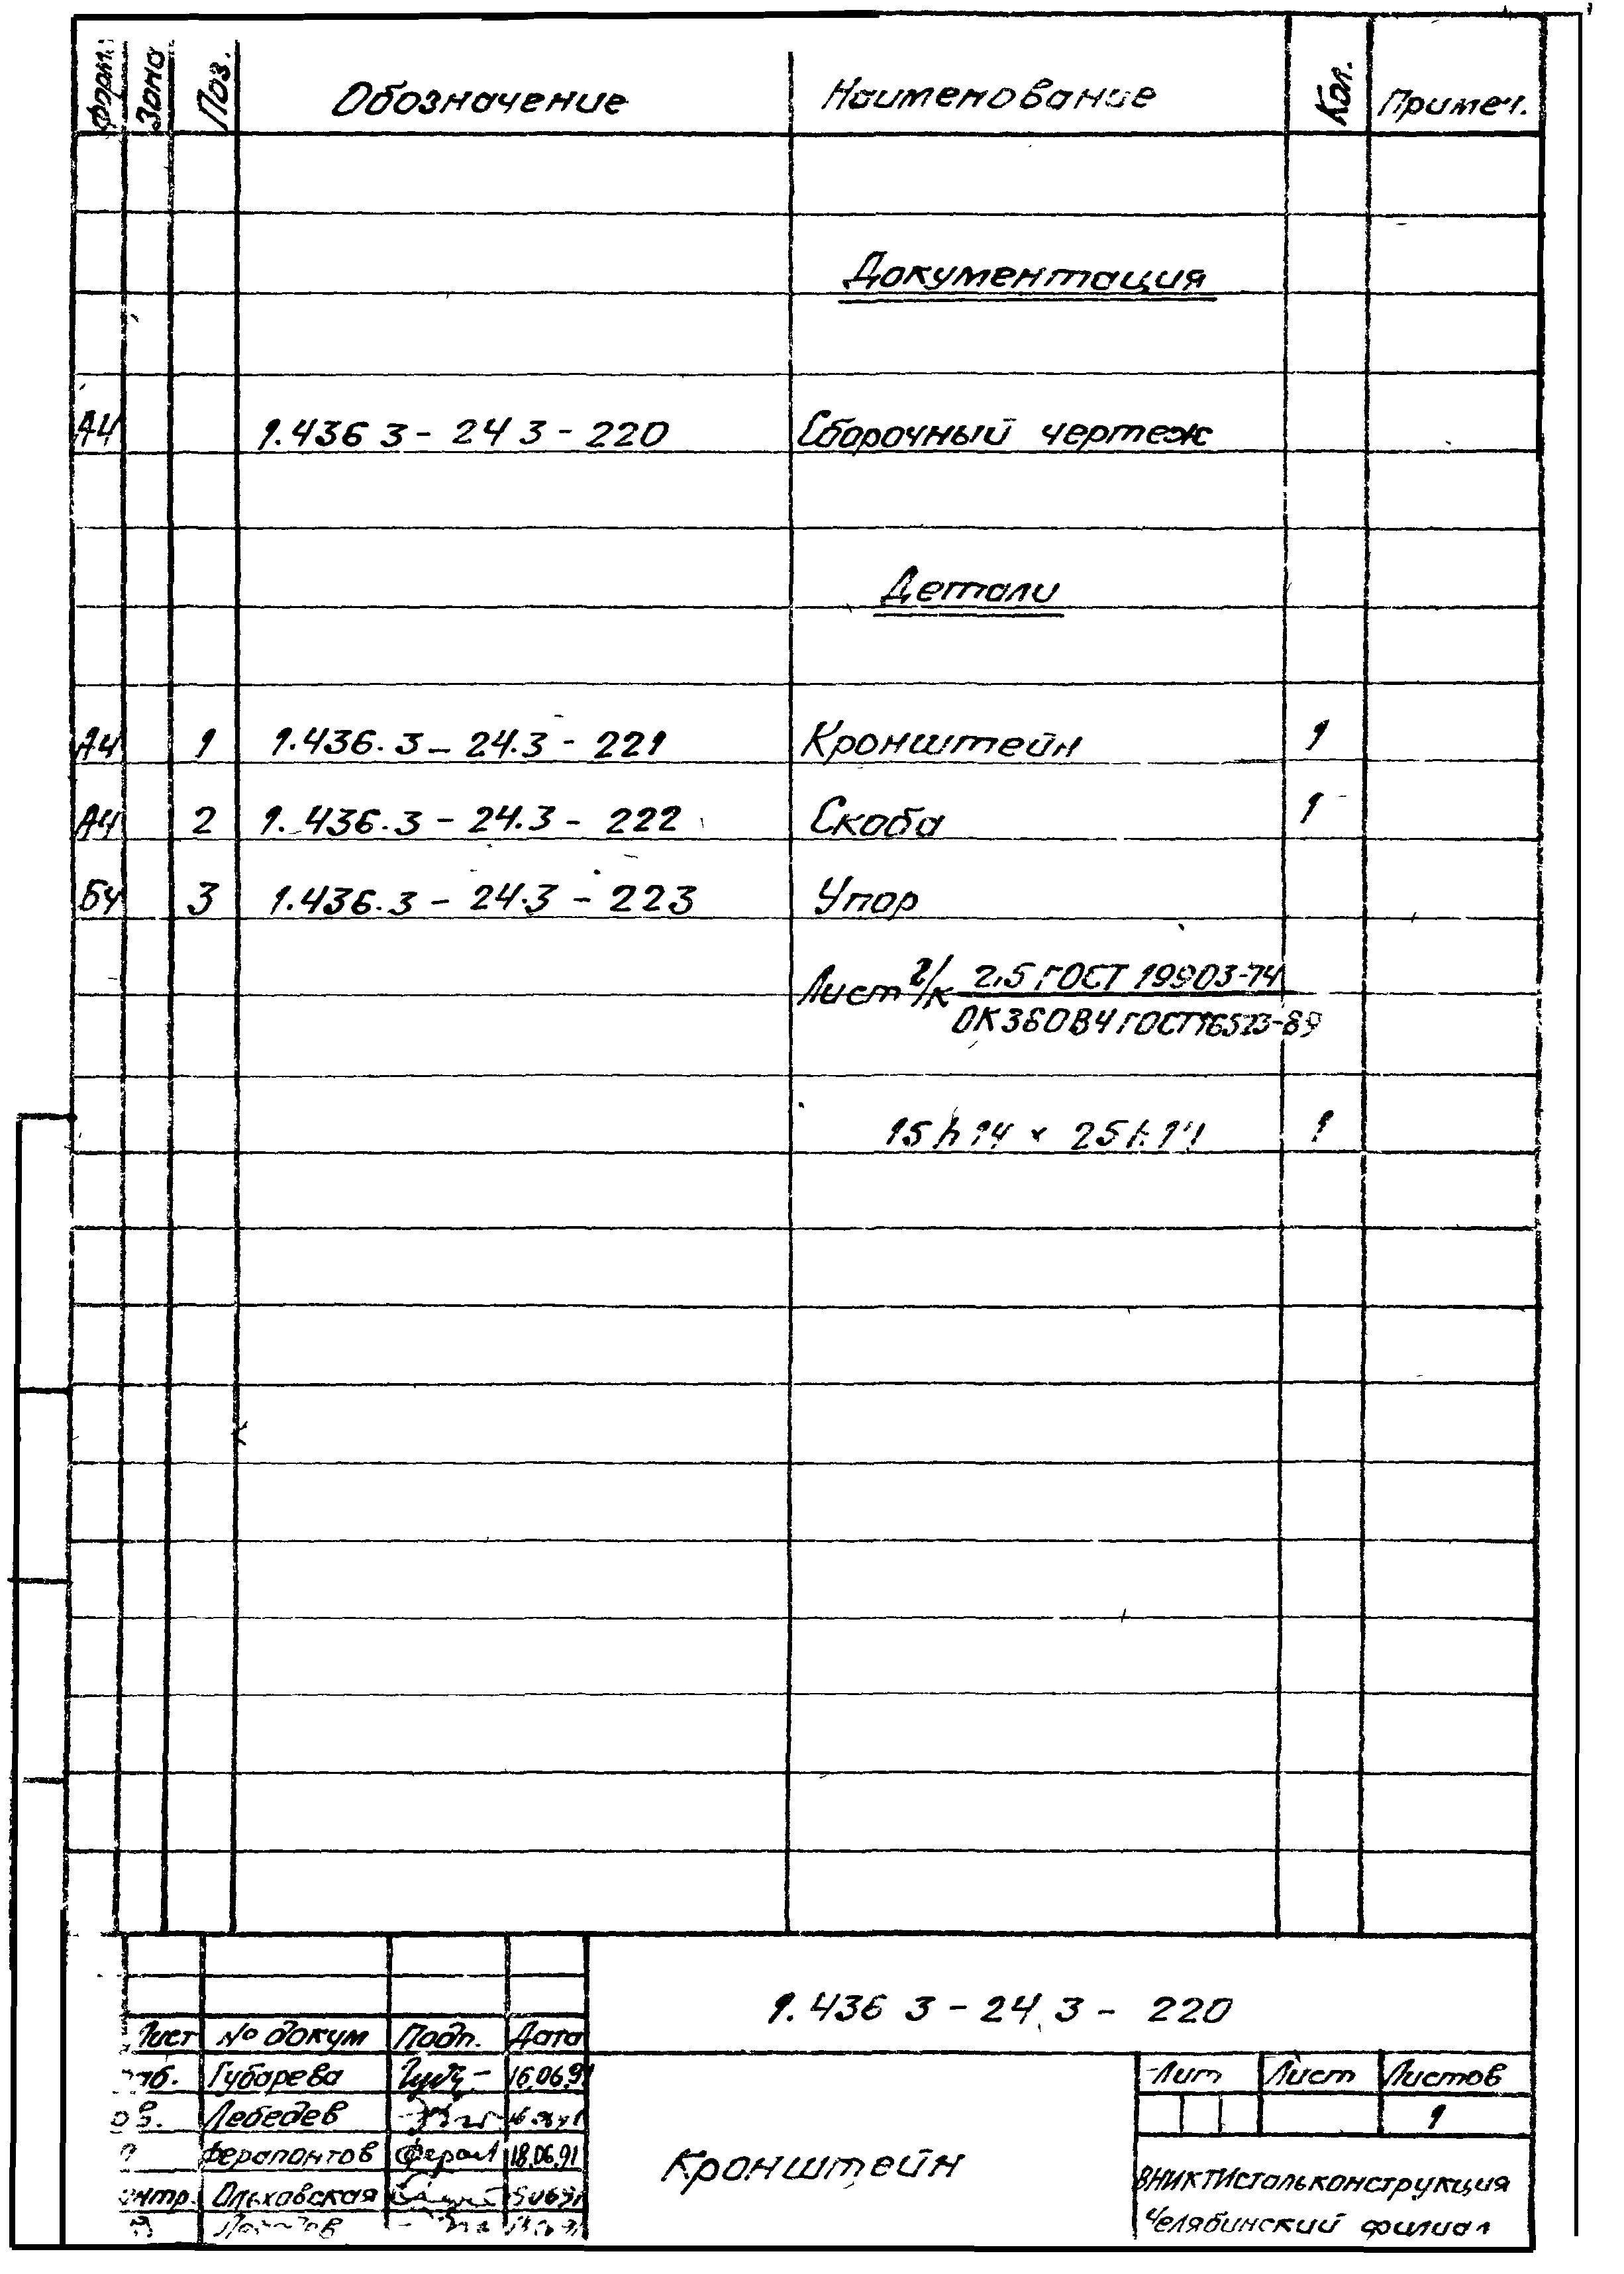 Форм. Зона Поз. Обозначение Наименование Кол. Примеч.
Документация
А4 1.436 3 - 24 3 - 220 Сборочный чертеж
Детали
А4 1 1.436.3 - 24.3 - 221 Кронштейн 1
А4 2 1.436.3 - 24.3 - 222 Скоба 1
БЧ 3 1.436.3 - 24.3 - 223 Упор
Лист г/к 2,5 ГОСТ 19903-74
ОК360В4 ГОСТ16523-89
15 h 14 × 25 h 14 1
1.436 3 - 24 3 - 220
Лист № докум Подп. Дата
Губарева 16.06.91
Лебедев
Ферапонтов 18.06.91
Ольховская
Кронштейн
Лит Лист Листов
1
ВНИКТИстальконструкция
Челябинский филиал